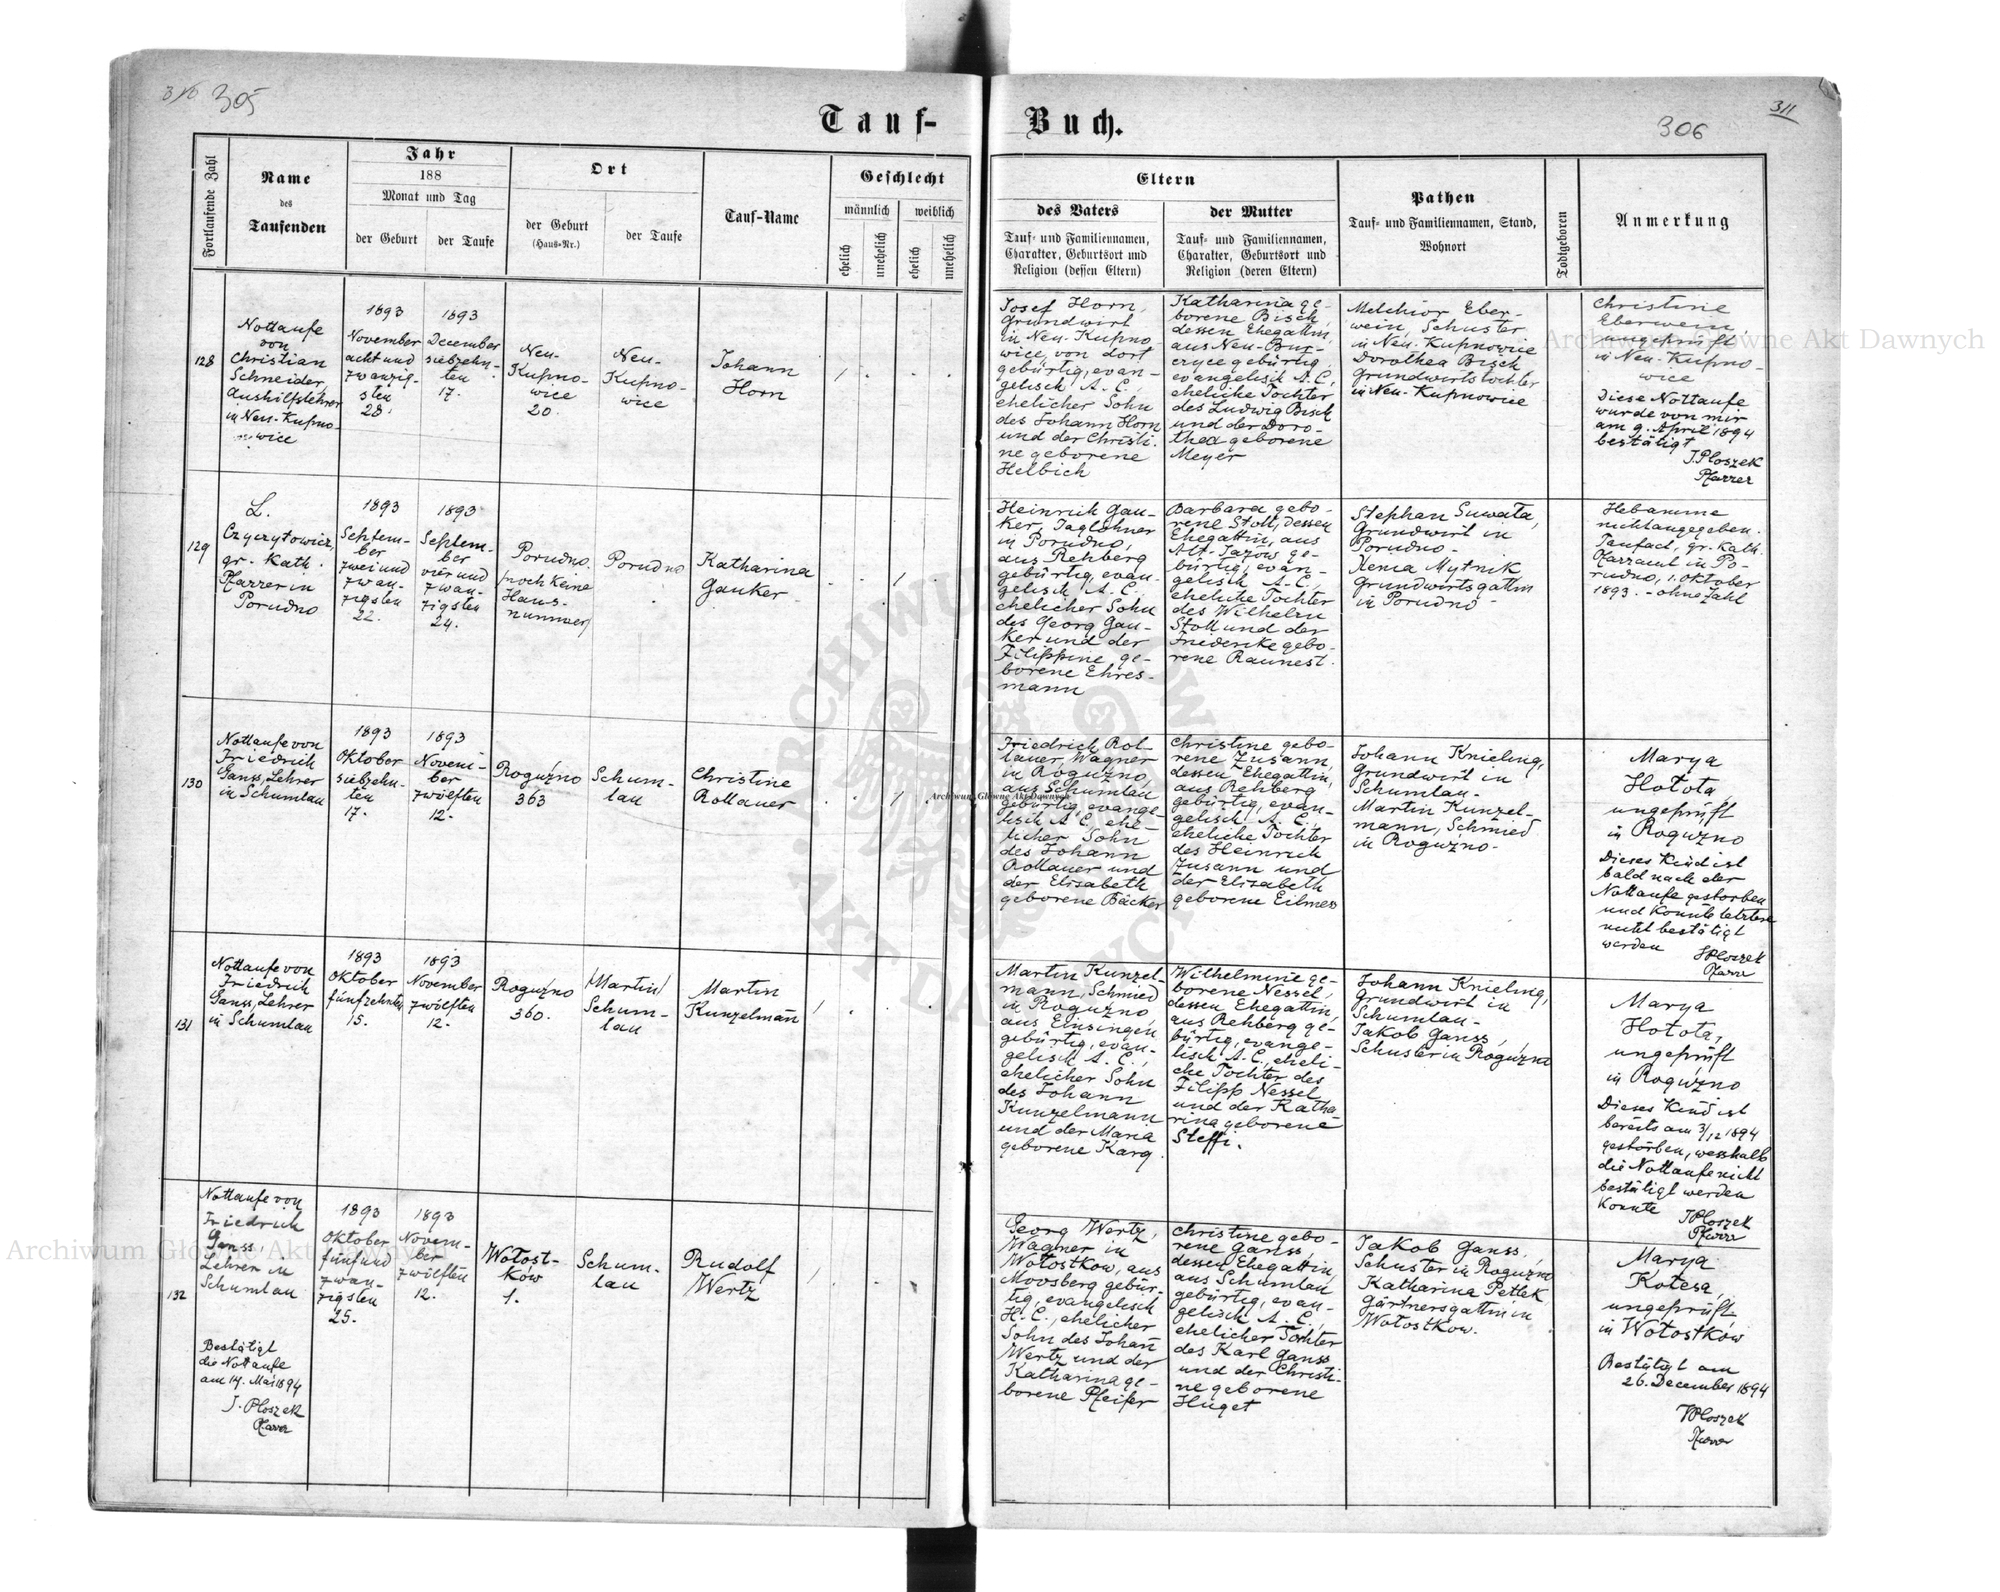 310 305
Tauf-
Buch.
306
311
Fortlaufende Zahl
Name
des
Taufenden
Jahr
188
Monat und Tag
der Geburt
der Taufe
Ort
der Geburt
(Haus-Nr.)
der Taufe
Tauf-Name
Geschlecht
männlich
weiblich
ehelich
unehelich
ehelich
unehelich
Eltern
des Vaters
Tauf- und Familiennamen,
Charakter, Geburtsort und
Religion (dessen Eltern)
der Mutter
Tauf- und Familiennamen,
Charakter, Geburtsort und
Religion (deren Eltern)
Pathen
Tauf- und Familiennamen, Stand,
Wohnort
Todtgeboren
Anmerkung
128
Nottaufe
von
Christian
Schneider,
Aushilfslehrer
in Neu-Kupno-
wice
1893
November
acht und
zwanzig-
sten
28.
1893
December
siebzehn-
ten
17.
Neu-
Kupno-
wice
20.
Neu-
Kupno-
wice
Johann
Horn
Josef Horn,
Grundwirt
in Neu-Kupno-
wice, von dort
gebürtig, evan-
gelisch A. C.,
ehelicher Sohn
des Johann Horn
und der Christi-
ne geborene
Helbich
Katharina ge-
borene Bisch,
dessen Ehegattin,
aus Neu-Bur-
czyce gebürtig
evangelisch A.C.,
eheliche Tochter
des Ludwig Bisch
und der Doro-
thea geborene
Meyer
Melchior Eber-
wein, Schuster
in Neu-Kupnowice
Dorothea Bisch
Grundwirtstochter
in Neu-Kupnowice
Christine
Eberwein,
ungeprüft
in Neu-Kupno-
wice
Diese Nottaufe
wurde von mir
am 9. April 1894
bestätigt
J. Ploszek
Pfarrer
129
L.
Czyrzytowicz,
gr. Kath.
Pfarrer in
Porudno
1893
Septem-
ber
zwei und
zwan-
zigsten
22.
1893
Septem-
ber
vier und
zwan-
zigsten
24.
Porudno.
(noch keine
Haus-
nummer)
Porudno
Katharina
Gauker
Heinrich Gau-
ker, Taglöhner
in Porudno,
aus Rehberg
gebürtig, evan-
gelisch A. C.,
ehelicher Sohn
des Georg Gau-
ker und der
Filippine ge-
borene Ehres-
mann
Barbara gebo-
rene Stoll, dessen
Ehegattin, aus
Alt-Jazow ge-
bürtig, evan-
gelisch A. C.,
eheliche Tochter
des Wilhelm
Stoll und der
Friederike gebo-
rene Raunest.
Stephan Suwata,
Grundwirt in
Porudno-
Xenia Mytnik
Grundwirtsgattin
in Porudno-
Hebamme
nicht angegeben.
Taufact, gr. Kath.
Pfarramt in Po-
rudno, 1. Oktober
1893. - ohne Zahl
130
Nottaufe von
Friedrich
Ganss, Lehrer
in Schumlau
1893
Oktober
siebzehn-
ten
17.
1893
Novem-
ber
zwölften
12.
Roguźno
363
Schum-
lau
Christine
Rollauer
Friedrich Rol-
lauer, Wagner
in Roguźno,
aus Schumlau
gebürtig, evange-
lisch A. C., ehe-
licher Sohn
des Johann
Rollauer und
der Elisabeth
geborene Bäcker
Christine gebo-
rene Zusann,
dessen Ehegattin,
aus Rehberg
gebürtig, evan-
gelisch A. C.,
eheliche Tochter
des Heinrich
Zusann und
der Elisabeth
geborene Eilmes
Johann Knieling,
Grundwirt in
Schumlau-
Martin Kunzel-
mann, Schmied
in Roguźno-
Marya
Hotota
ungeprüft
in Roguźno
Dieses Kind ist
bald nach der
Nottaufe gestorben
und konnte letztere
nicht bestätigt
werden
JPloszek
Pfarrer
131
Nottaufe von
Friedrich
Ganss, Lehrer
in Schumlau
1893
Oktober
fünfzehnten
15.
1893
November
zwölften
12.
Roguźno
360.
(Martin)
Schum-
lau
Martin
Kunzelmañ
Martin Kunzel-
mann, Schmied
in Roguźno,
aus Einsingen
gebürtig, evan-
gelisch A. C.,
ehelicher Sohn
des Johann
Kunzelmann
und der Maria
geborene Karg
Wilhelmine ge-
borene Nessel,
dessen Ehegattin,
aus Rehberg ge-
bürtig, evange-
lisch A. C., eheli-
che Tochter des
Filipp Nessel
und der Katha-
rina geborene
Steffi.
Johann Knieling,
Grundwirt in
Schumlau-
Jakob Ganss,
Schuster in Roguźno
Marya
Hotota,
ungeprüft
in Roguźno
Dieses Kind ist
bereits am 3/12 1894
gestorben, wesshalb
die Nottaufe nicht
bestätigt werden
konnte
JPloszek
Pfarrer
132
Nottaufe von
Friedrich
Ganss,
Lehrer in
Schumlau
Bestätigt
die Nottaufe
am 14. Mai 1894
J. Ploszek
Pfarrer
1893
Oktober
fünf und
zwan-
zigsten
25.
1893
Novem-
ber
zwölften
12.
Wołost-
ków
1.
Schum-
lau
Rudolf
Wertz
Georg Wertz,
Wagner in
Wołostkow, aus
Moosberg gebür-
tig, evangelisch
H. C., ehelicher
Sohn des Johañ
Wertz und der
Katharina ge-
borene Pfeifer
Christine gebo-
rene Ganss,
dessen Ehegattin,
aus Schumlau
gebürtig, evan-
gelisch A. C.,
ehelicher Tochter
des Karl Ganss
und der Christi-
ne geborene
Huget
Jakob Ganss,
Schuster in Roguźno
Katharina Petlek
Gärtnersgattin in
Wołostkow.
Marya
Kotesa,
ungeprüft,
in Wołostkow
Bestätigt am
26. December 1894
JPloszek
Pfarrer
Archiwum Główne Akt Dawnych
Archiwum Główne Akt Dawnych
Archiwum Główne Akt Dawnych